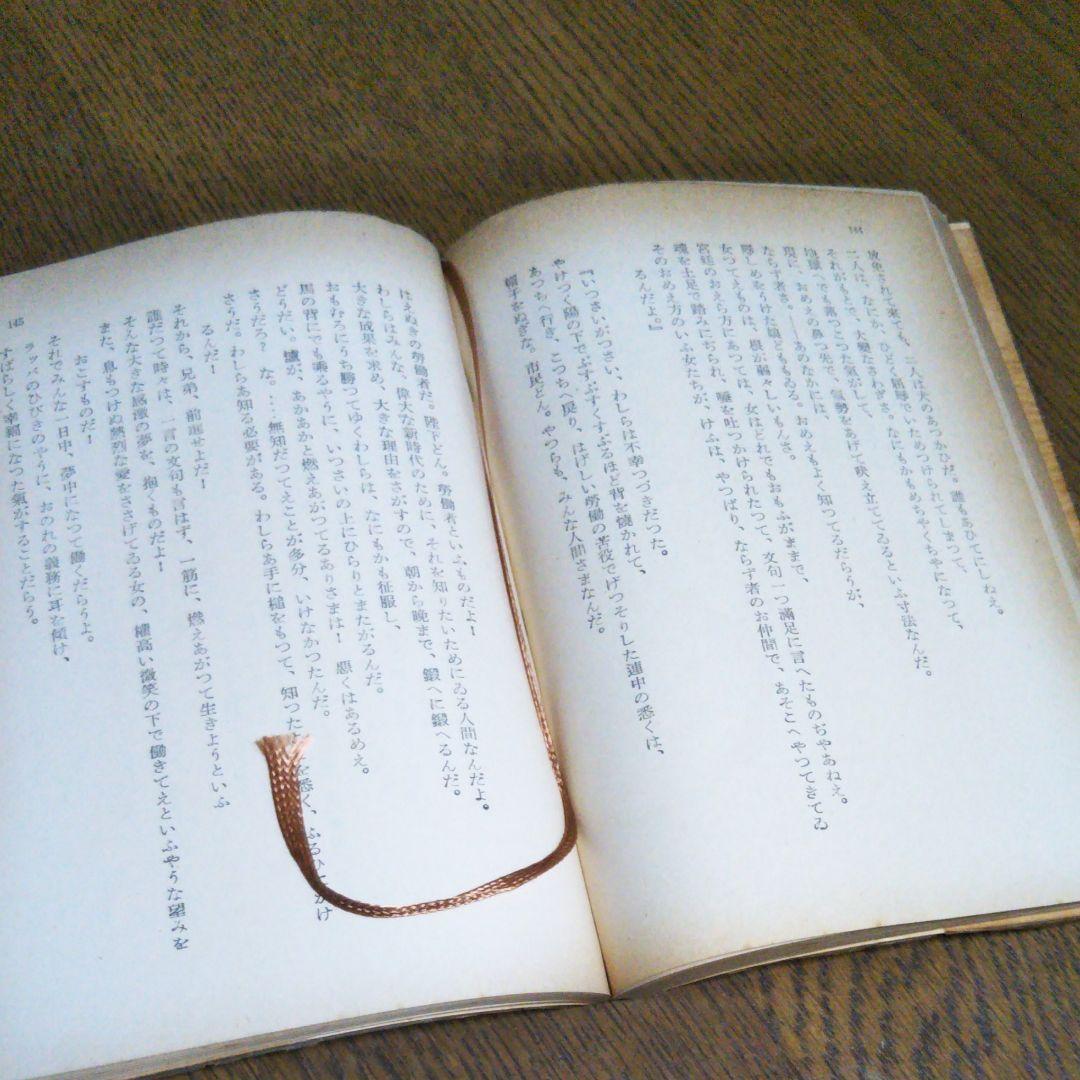 144
放免されて来ても、二人は犬のあつかひだ。誰もあひてにしねえ。
二人は、なにか、ひどく屈辱でいためつけられてしまつて、
それがもとで、大變なさわぎさ。なにもかもめちやくちやになつて、
地獄へでも落つこつた氣がして、
おめえの鼻つ先で、氣勢をあげて咲え立ててるといふ寸法なんだ。
現に、おめえもよく知つてるだらうが、
ならず者さ。――あのなかには、
辱しめをうけた娘どももゐる。
女つてえものは、根が弱々しいもんさ。
宮廷のおえら方にあつては、女はどれでもおもふがままで、
魂を土足で踏みにぢられ、唾を吐つかけられたつて、文句一つ滿足に言へたものぢやあねえ。
そのおめえ方のいふ女たちが、けふは、やつぱり、ならず者のお仲間で、あそこへやつてきてゐ
るんだよ。』
『いつさいがつさい、わしらは不幸つづきだつた。
やけつく陽の下でぷすぷすくすぶるほど背を燒かれて、
あつちへ行き、こつちへ戻り、はげしい勞働の苦役でげつそりした連中の悉くは、
帽子をぬぎな。市民どん。やつらも、みんな人間さまなんだ。
はえぬきの勞働者だ。陛下どん。勞働者といふものだよ!
わしらはみんな、偉大な新時代のために、それを知りたいためにゐる人間なんだよ。
大きな成果を求め、大きな理由をさがすので、朝から晩まで、鍛へに鍛へるんだ。
おもむろにうち勝つてゆくわしらは、なにもかも征服し、
馬の背にでも乘るやうに、いつさいの上にひらりとまたがるんだ。
どうだい。爐が、あかあかと燃えあがつてるありさまは! 惡くはあるめえ。
さうだろ? な。‥‥無知だつてえことが多分、いけなかつたんだ。
さうだ。わしらあ知る必要がある。わしらあ手に槌をもつて、知つた を悉く、ふるひ かけ
るんだ!
それから、兄弟、前進せよだ!
誰だつて時々は、一言の文句も言はず、一筋に、燃えあがつて生きようといふ
そんな大きな感激の夢を、抱くものだよ!
また、息もつけぬ熱烈な愛をささげてゐる女の、權高い微笑の下で働きてえといふやうな望みを
おこすものだ!
それでみんな一日中、夢中になつて働くだらうよ。
ラッパのひびきのやうに、おのれの義務に耳を傾け、
すばらしく幸福になつた氣がすることだらう。
145